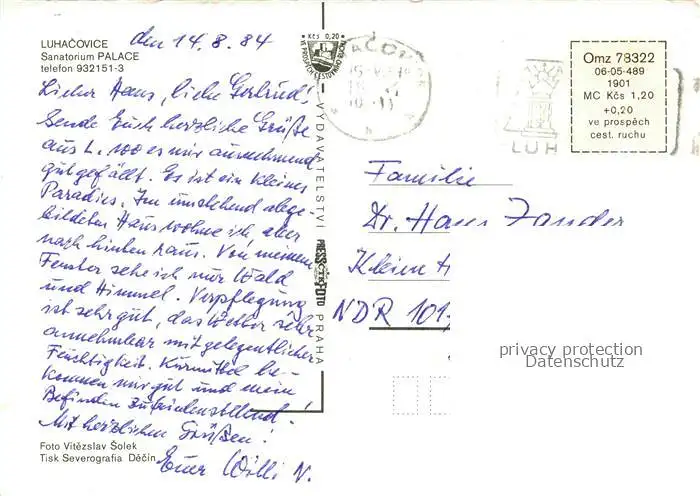 LUHAČOVICE
Sanatorium PALACE
telefon 932151-3
den 14.8.84
Lieber Hans, liebe Gertrud!
Sende Euch herzliche Grüße
aus L. wo es mir ausnehmend
gut gefällt. Es ist ein kleines
Paradies. Im umstehend abge-
bildeten Haus wohne ich, aber
nach hinten raus. Von meinem
Fenster sehe ich nur Wald
und Himmel. Verpflegung
ist sehr gut, das Wetter sehr
annehmbar mit gelegentlicher
Feuchtigkeit. Kurmittel be-
kommen mir gut und mein
Befinden zufriedenstellend!
Mit herzlichen Grüßen!
Euer Willi N.
Foto Vítězslav Šolek
Tisk Severografia Děčín
Kčs 0,20
VE PROSPĚCH CESTOVNÍHO RUCHU
VYDAVATELSTVÍ PRESSFOTO PRAHA
LUH
Omz 78322
06-05-489
1901
MC Kčs 1,20
+0,20
ve prospěch
cest. ruchu
Familie
Dr. Hans Zander
Klein
NDR 101
privacy protection
Datenschutz